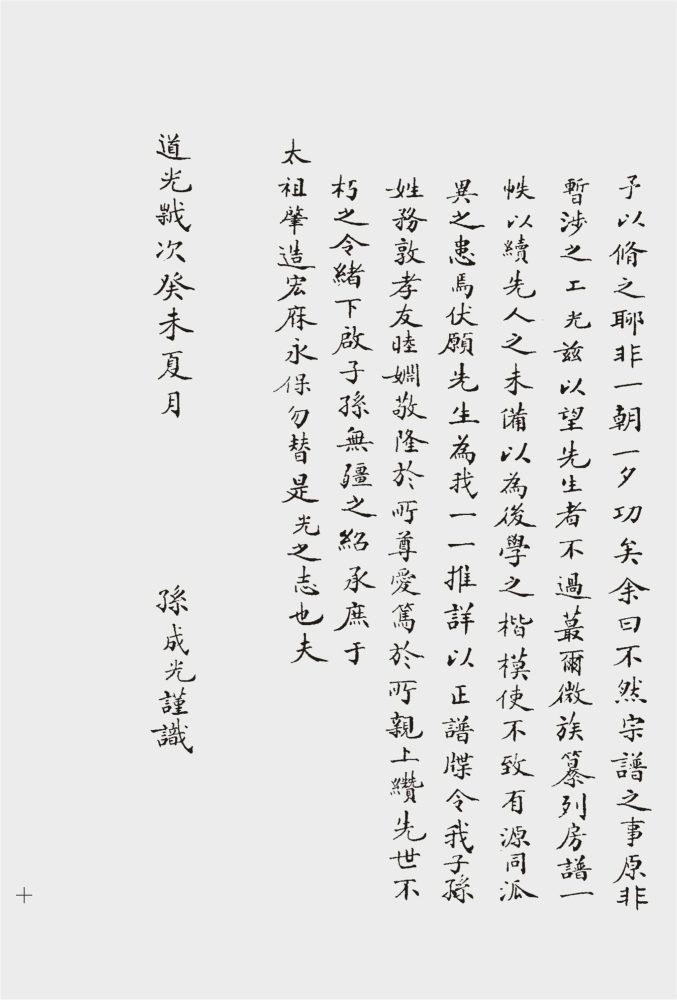 予以脩之耶非一朝一夕功矣余曰不然宗譜之事原非
暫涉之工光兹以望先生者不過蕞爾微族纂列房譜一
帙以續先人之未備以為後學之楷模使不致有源同派
異之患焉伏願先生為我一一推詳以正譜牒令我子孫
姓務敦孝友睦婣敬隆於所尊愛篤於所親上纘先世不
朽之令緒下啟子孫無疆之紹承庶于
太祖肇造宏庥永保勿替是光之志也夫
道光歲次癸未夏月
孫成光謹識